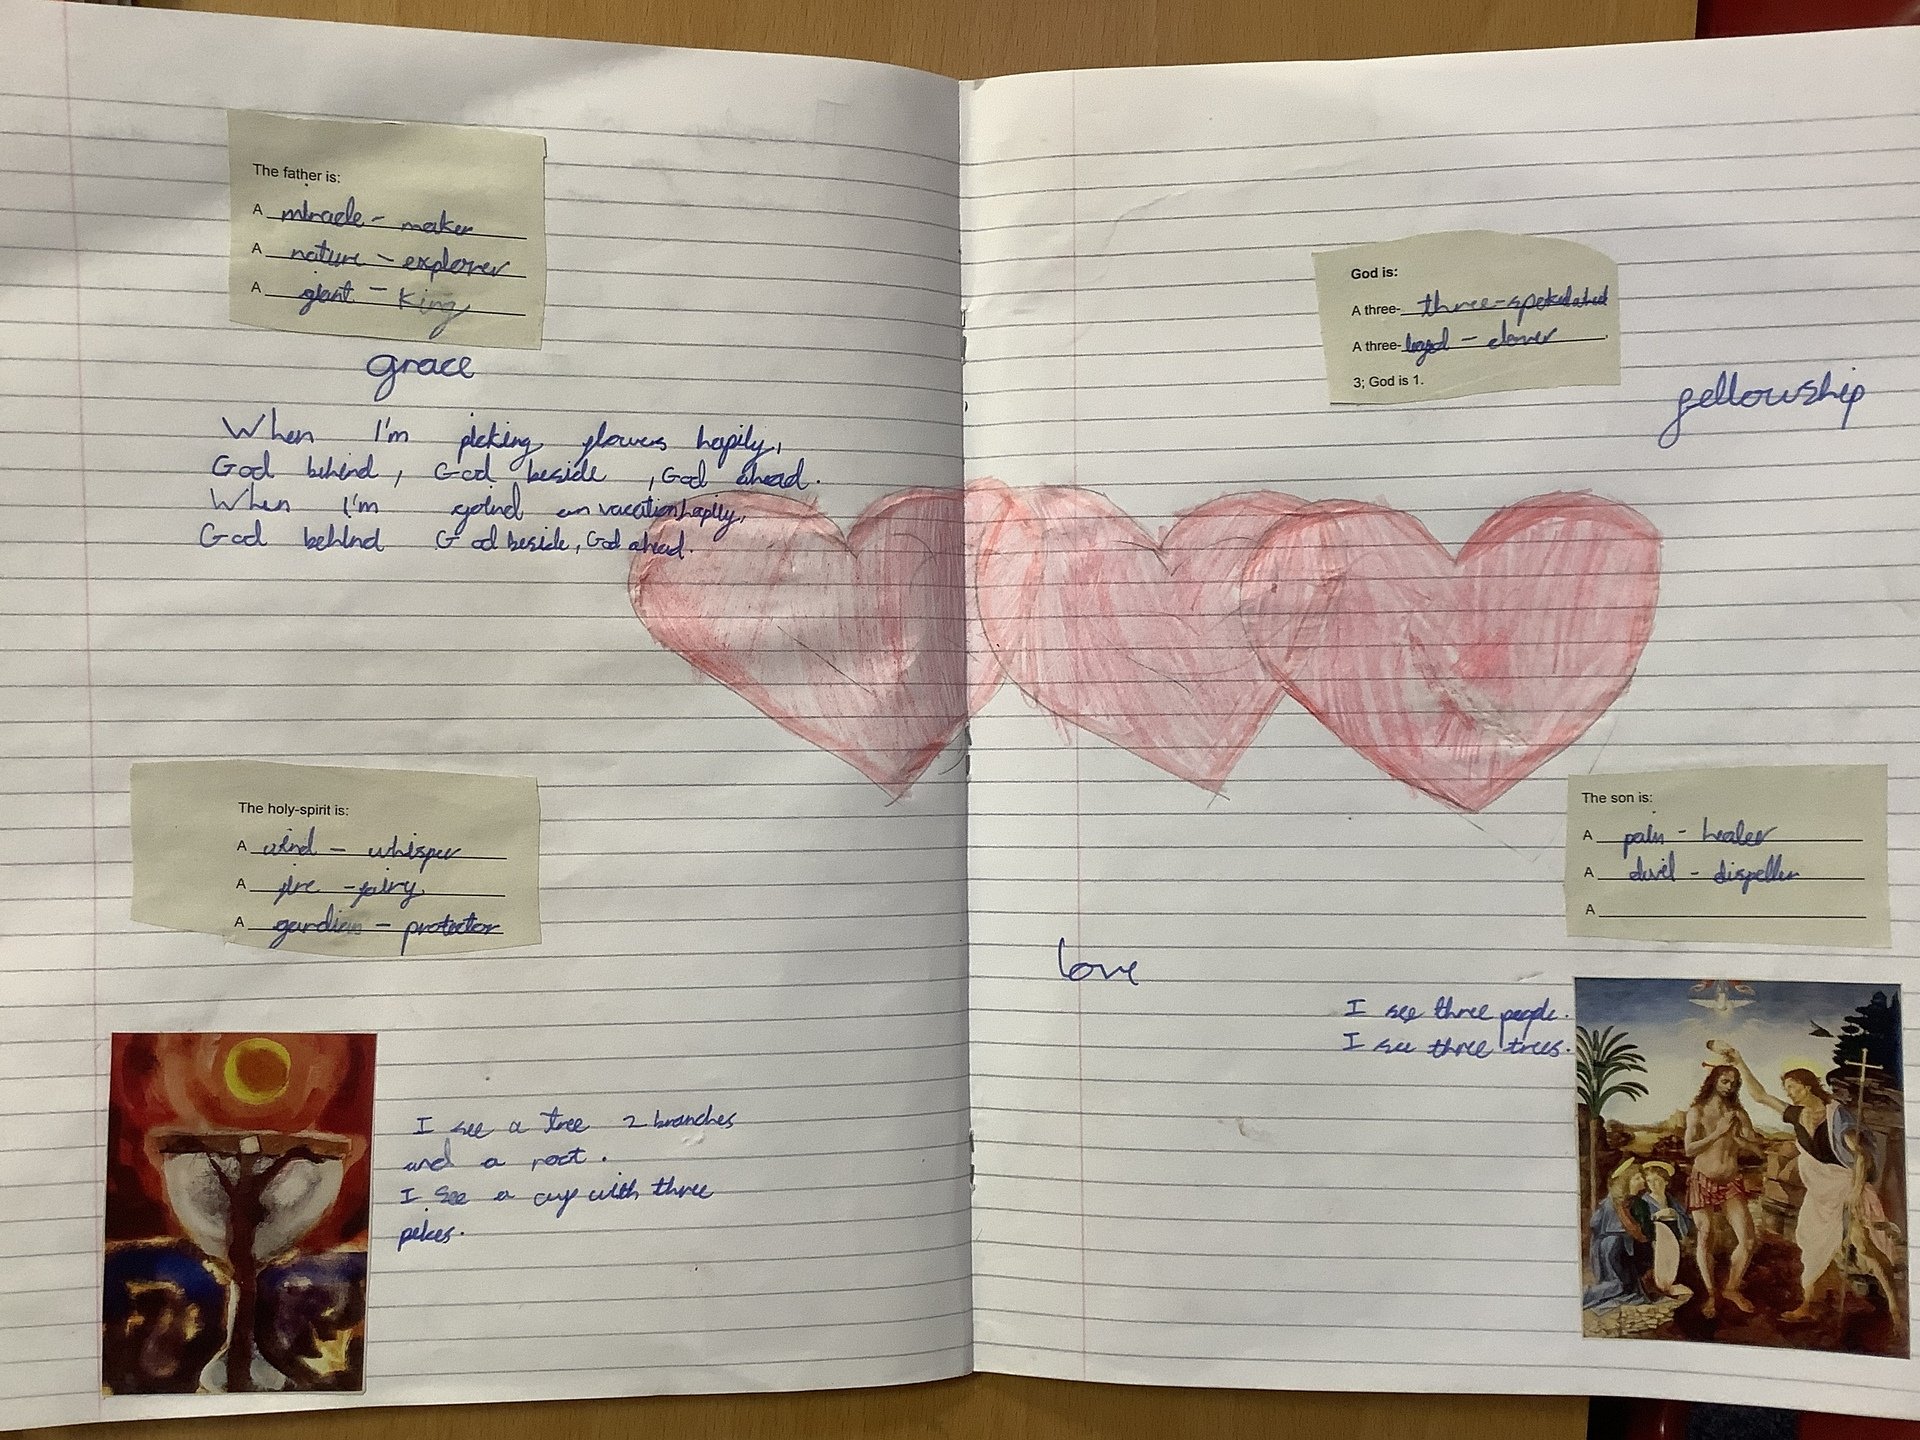 The father is:
A miracle - maker
A nature - explorer
A giant - King
grace
When I'm picking flowers hapily,
God behind, God beside, God ahead.
When I'm goind on vacation hapily,
God behind God beside, God ahead.
The holy-spirit is:
A wind - whisper
A fire - fairy
A gardien - protector
I see a tree 2 branches
and a root.
I see a cup with three
pekes.
God is:
A three- three-
A three- - clover
3; God is 1.
fellowship
The son is:
A pain - healer
A divil - dispeller
A
love
I see three people.
I see three trees.